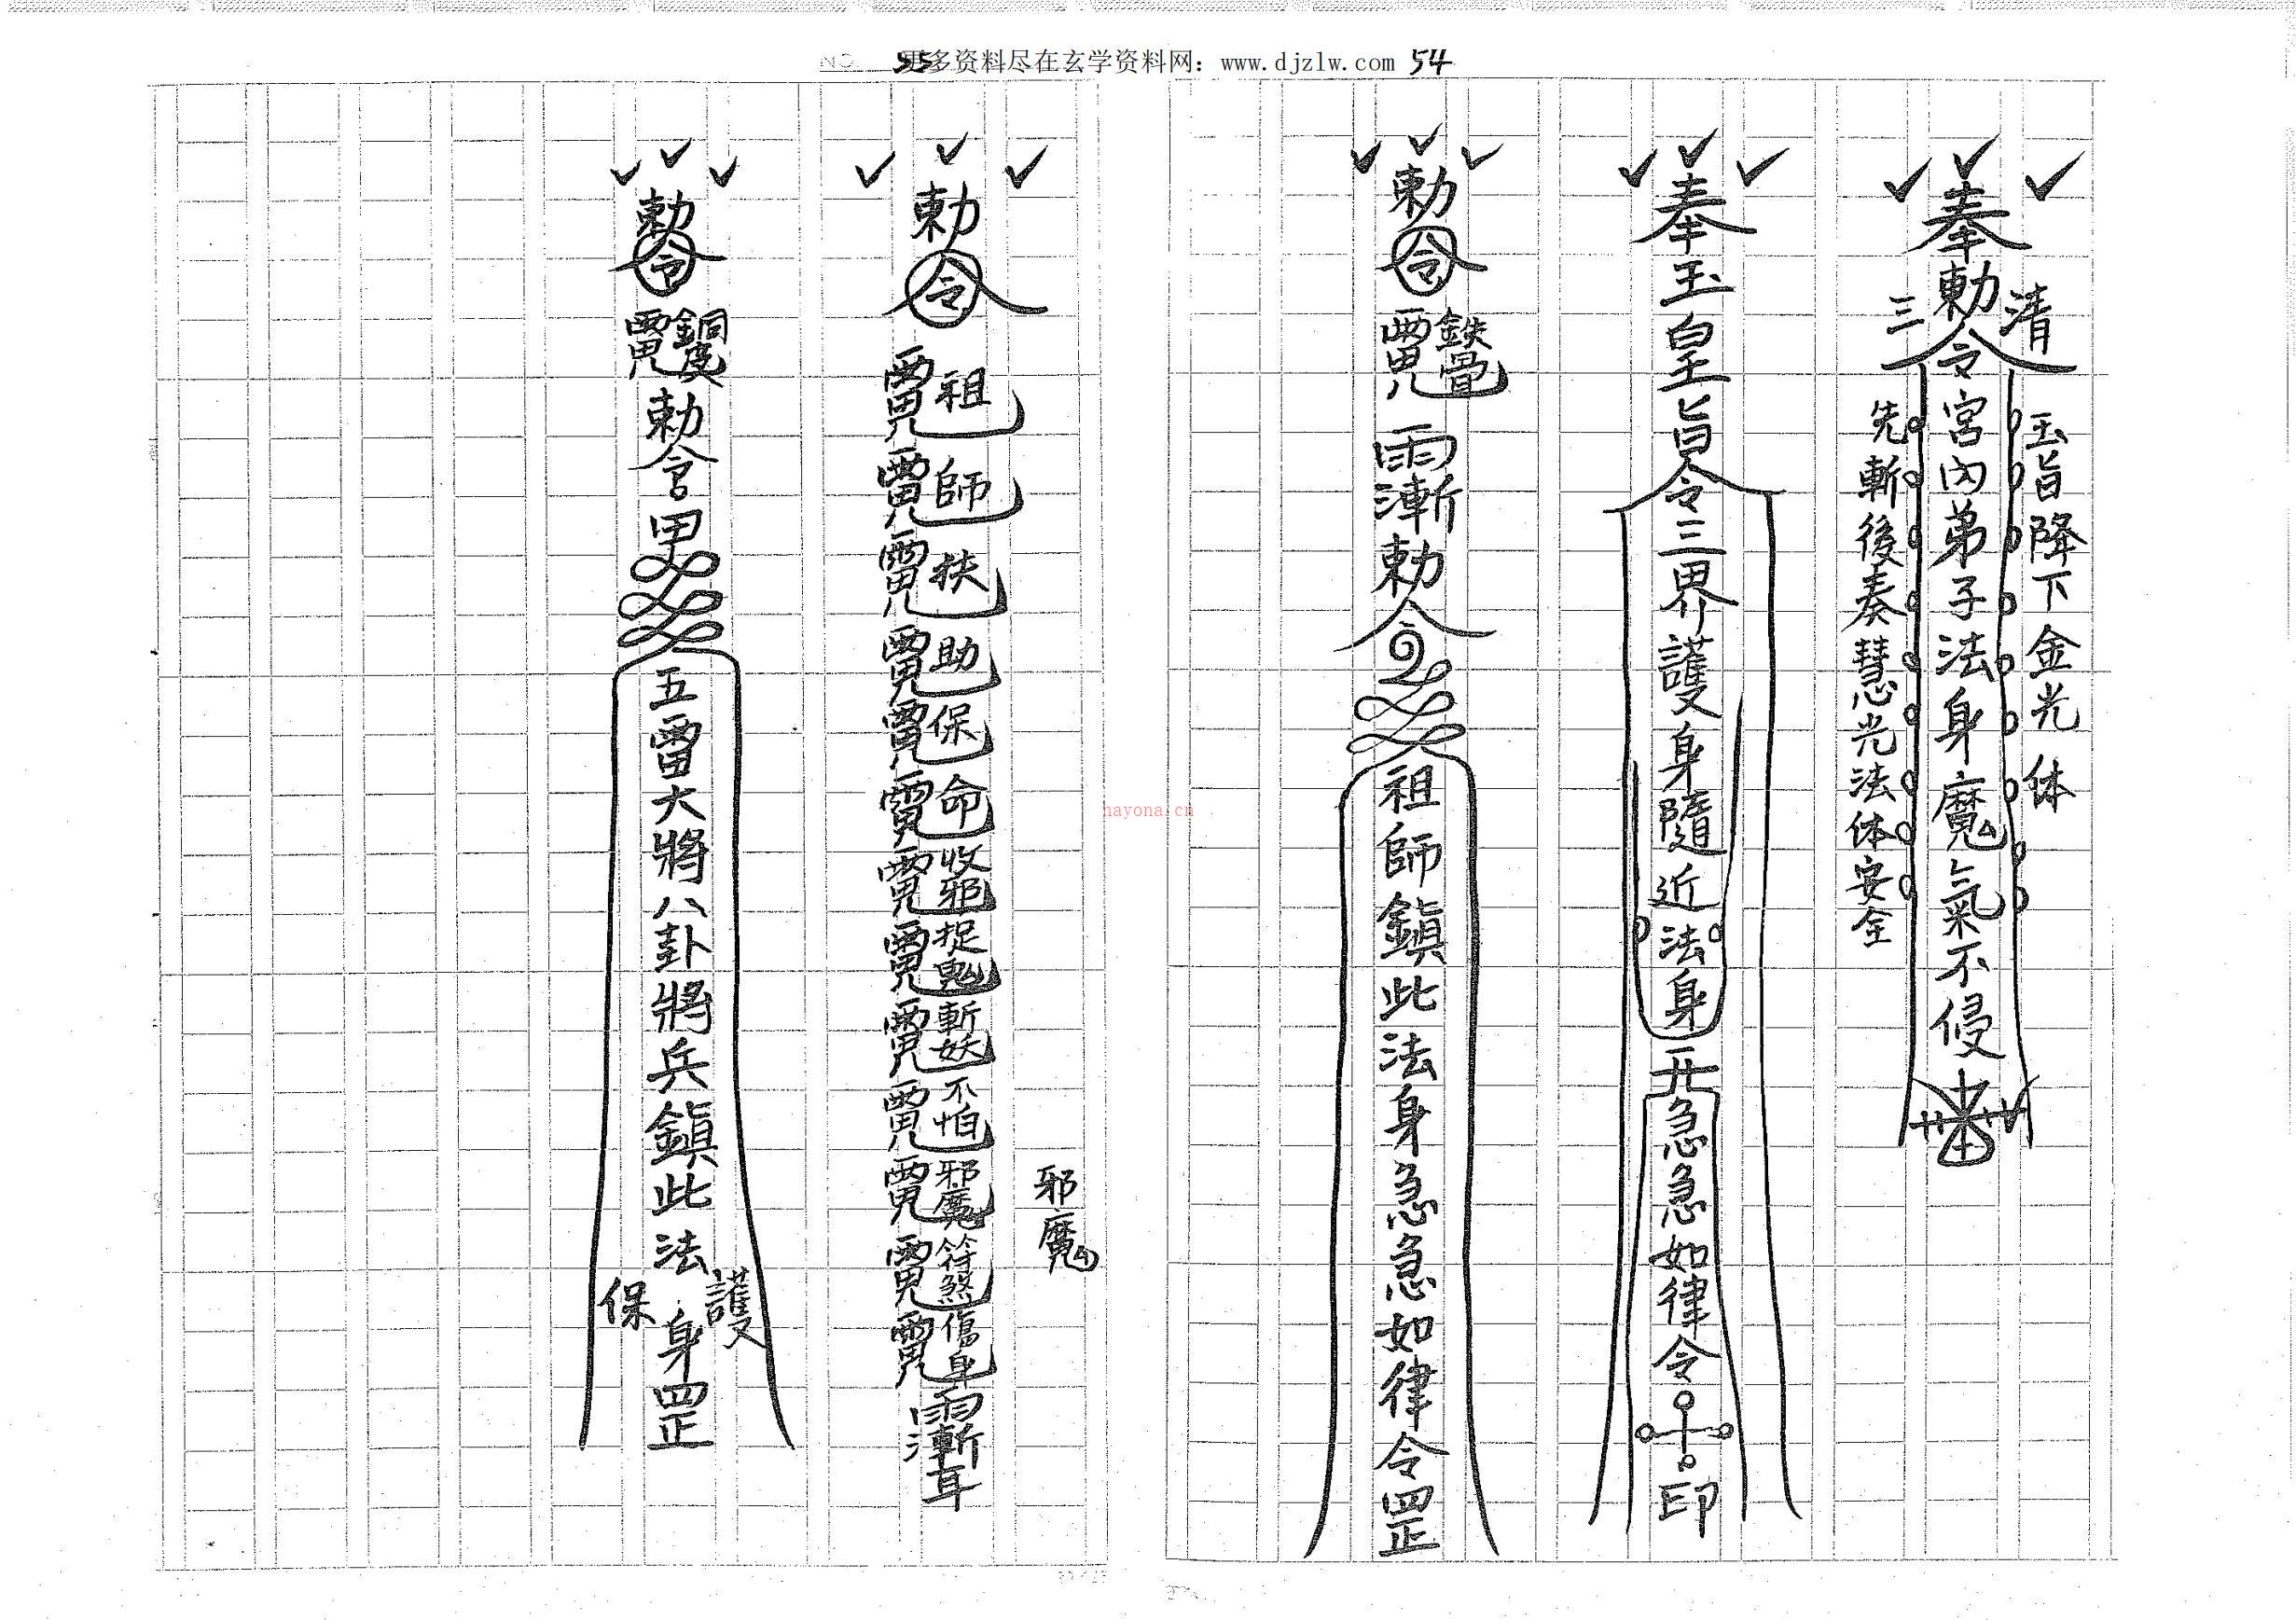 更多资料尽在玄学资料网：www.djzlw.com
54
55
hayona.cn
奉勅令宮內弟子法身魔氣不侵
三清
玉旨降下金光体
先斬後奏慧光法体安全
奉玉皇旨令三界護身隨近法身
急急如律令
印
勅令
勅令
祖師鎮此法身急急如律令罡
勅令
祖師扶助保命收邪捉鬼斬妖不怕邪魔符煞傷身
邪魔
勅令
勅令
五雷大將八卦將兵鎮此法身罡
保護